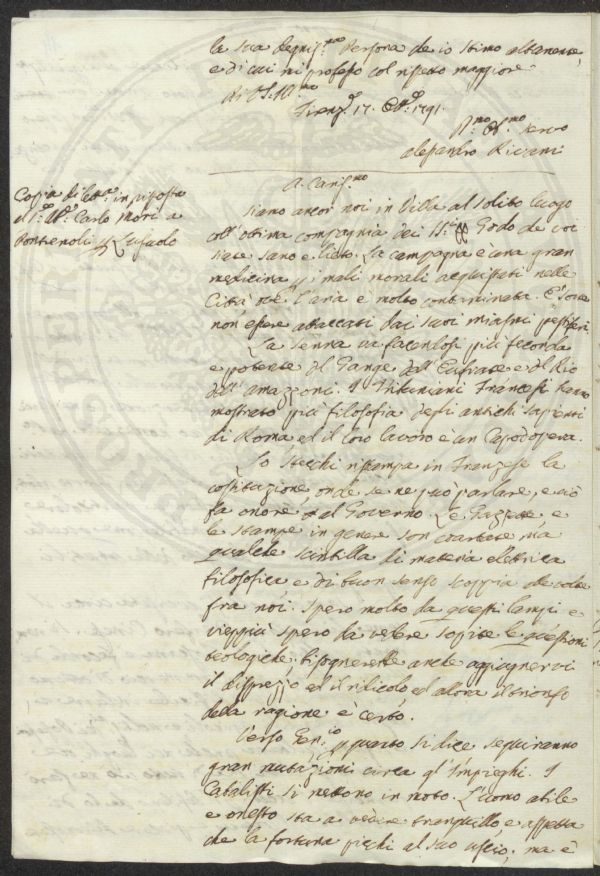 la sua degniss.ma Persona che io stimo altamente,
e di cui mi professo col rispetto maggiore
Di V. S. Ill.ma
Firenze 17. 8bre 1791.
D.mo Obb.mo servo
Alessandro Rivani
A. Cariss.mo
Copia di lett.a in risposta
al Sig.r Carlo Mori a
Pontremoli
Siamo ancor noi in Villa al solito luogo
coll'ottima compagnia dei Godo che voi
siate sano e lieto. La campagna è una gran
medicina p i mali morali acquistati nelle
Città ove l'aria è molto contaminata. È
non essere attaccati dai suoi miasmi pestiferi
La Senna va facendosi più feconda
e potente del Gange dell'Eufrate e del Rio
dell'amazzoni. I Tribuniani Francesi hanno
mostrato più filosofia degli antichi sapienti
di Roma ed il loro lavoro è un Capodopera.
Lo Stecchi ristampa in Franzese la
costituzione onde se ne può parlare, e ciò
fa onore al Governo. Le Gazzette e
le stampe in genere son coartate ma
qualche scintilla di materia elettrica
filosofica e di buon senso scoppia alle volte
fra noi. Spero molto da questi lampi e
vieppiù spero da vedere sopite le questioni
teologiche; bisognerebbe anche aggiugnervi
il disprezzo ed il ridicolo ed allora il trionfo
della ragione è certo.
Verso Gen.io p quanto si dice seguiranno
gran mutazioni circa gl'Impieghi. I
Cabalisti si mettono in moto. L'uomo abile
e onesto sta a vedere tranquillo e aspetta
che la fortuna picchi al suo uscio; ma è